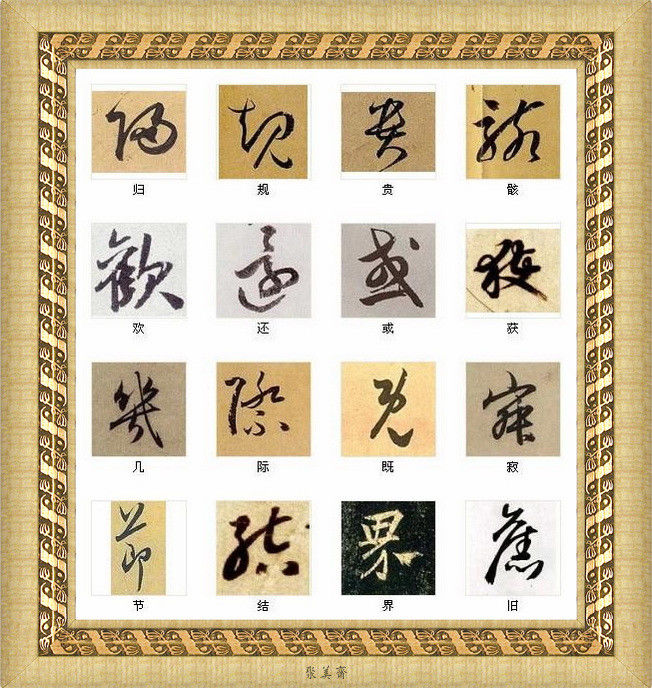 归 规 贵 骸
欢 还 或 获
几 际 既 寂
节 结 界 旧
聚美斋